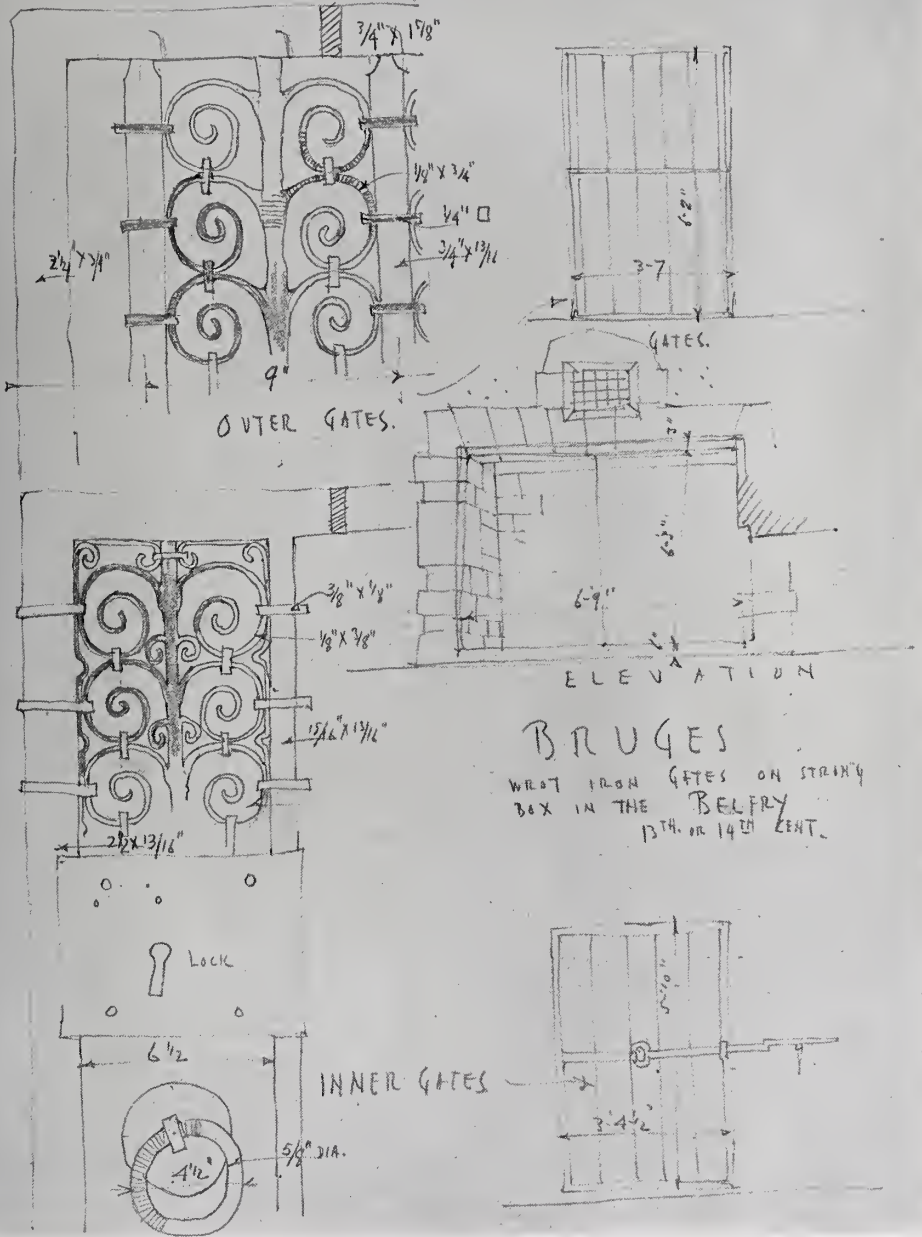 3/4" X 1 5/8"
1/8" X 3/4"
1/4" □
3/4" X 13/16
2 1/4 X 3/4"
9"
OUTER GATES.
6'-2"
3-7
GATES.
3"
6'-3"
6'-9"
6"
ELEVATION
3/8" X 1/8"
1/8" X 3/8"
15/16" X 13/16"
2 1/2 X 13/16"
BRUGES
WROT IRON GATES ON STRONG
BOX IN THE BELFRY
13TH. OR 14TH CENT.
LOCK
6 1/2
INNER GATES
5'-10"
3'-4 1/2"
5/8" DIA.
4 1/2"